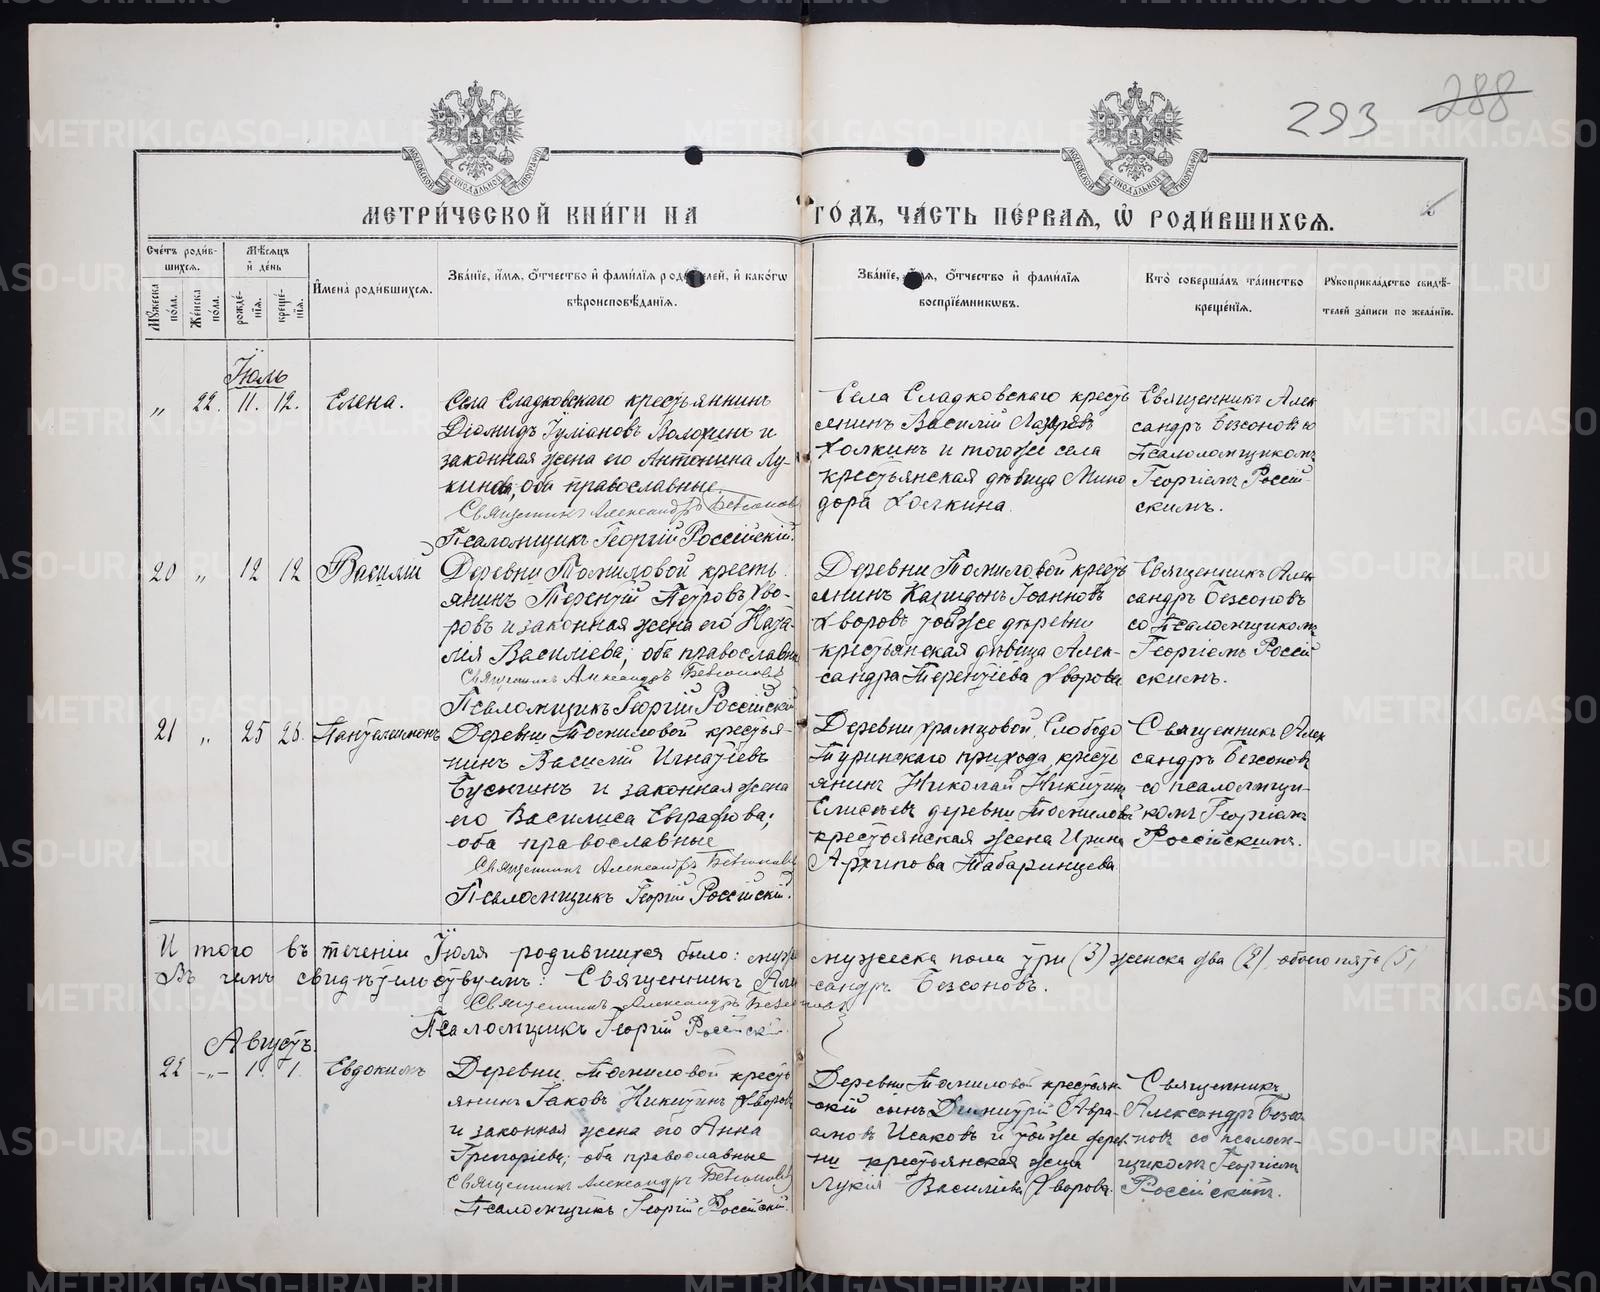 293 288
МЕТРИ́ЧЕСКОЙ КНИ́ГИ НА ГО́ДЪ, ЧА́СТЬ ПЕ́РВАЯ, Ѡ҆ РОДИ́ВШИХСЯ.
Сче́тъ роди́вшихся.
Му́жеска по́ла.
Же́нска по́ла.
Мѣ́сяцъ и҆ де́нь
рожде́нія.
креще́нія.
И҆мена̀ роди́вшихся.
Зва́нїе, и҆́мя, ѻ҆́тчество и҆ фами́лїя роди́телей, и҆ како́гѡ
вѣроисповѣ́данїя.
Зва́нїе, и҆́мя, ѻ҆́тчество и҆ фами́лїя
воспрїе́мникѡвъ.
Кто̀ соверша́лъ та́инство
креще́нїя.
Рꙋкоприкла́дство свидѣ́-
телей за́писи по жела́нїю.
Іюль
„ 22. 11. 12. Елена.
Села Сладковскаго крестьяннинъ
Діомидъ Іуліановъ Волохинъ и
законная жена его Антонина Лу-
кинова, оба православные
Священникъ Александръ Безсоновъ
Псаломщикъ Георгій Россійскій.
Села Сладковскаго кресть
янинъ Василій Лазаревъ
Холкинъ и тогоже села
крестьянская дѣвица Мино
дора Холкина.
Священникъ Алек
сандръ Безсоновъ
Псаломщикомъ
Георгіемъ Россій-
скимъ.
20 „ 12 12 Василій
Деревни Томиловой кресть
янинъ Терентій Петровъ Хво-
ровъ и законная жена его Ната-
лія Василіева; оба православны
Священникъ Александръ Безсоновъ
Псаломщикъ Георгій Россійскій
Деревни Томиловой кресть
янинъ Калидонъ Іоанновъ
Хворовъ тойже деревни
крестьянская дѣвица Алек-
сандра Терентіева Хворова
Священникъ Алек
сандръ Безсоновъ
со Псаломщикомъ
Георгіемъ Россій
скимъ.
21 „ 25 26. Пантелеимонъ
Деревни Томиловой крестья-
нинъ Василій Игнатіевъ
Бусыгинъ и законная жена
его Василиса Евграфова;
оба православные
Священникъ Александръ Безсоновъ
Псаломщикъ Георгій Россійскій.
Деревни Храмцовой, Слободо
Туринскаго прихода, кресть
янинъ Николай Никитинъ
Елисѣевъ деревни Томилово
крестьянская жена Ирина
Архипова Табаринцева
Священникъ Алек
сандръ Безсоновъ
со псаломщи-
комъ Георгіемъ
Россійскимъ.
Итого въ теченіи Іюля родившихся было: муж
мужеска пола три (3) женска два (2), обоего пять (5)
Въ чемъ свидѣтельствуемъ: Священникъ Алек
сандръ Безсоновъ.
Священникъ Александръ Безсоновъ
Псаломщикъ Георгій Россійскій
Августъ.
22 -„- 1. 1. Евдокимъ
Деревни Томиловой кресть
янинъ Іаковъ Никитинъ Хворовъ
и законная жена его Анна
Григоріева; оба православные
Священникъ Александръ Безсоновъ
Псаломщикъ Георгій Россійскій.
Деревни Томиловой крестьян
скій сынъ Димитрій Авра-
амовъ Исаковъ и тойже дерев
ни крестьянская жена
Лукія Василіева Хворова.
Священникъ
Александръ Безсо
новъ со псалом-
щикомъ Георгіемъ
Россійскимъ.
METRIKI.GASO-URAL.RU